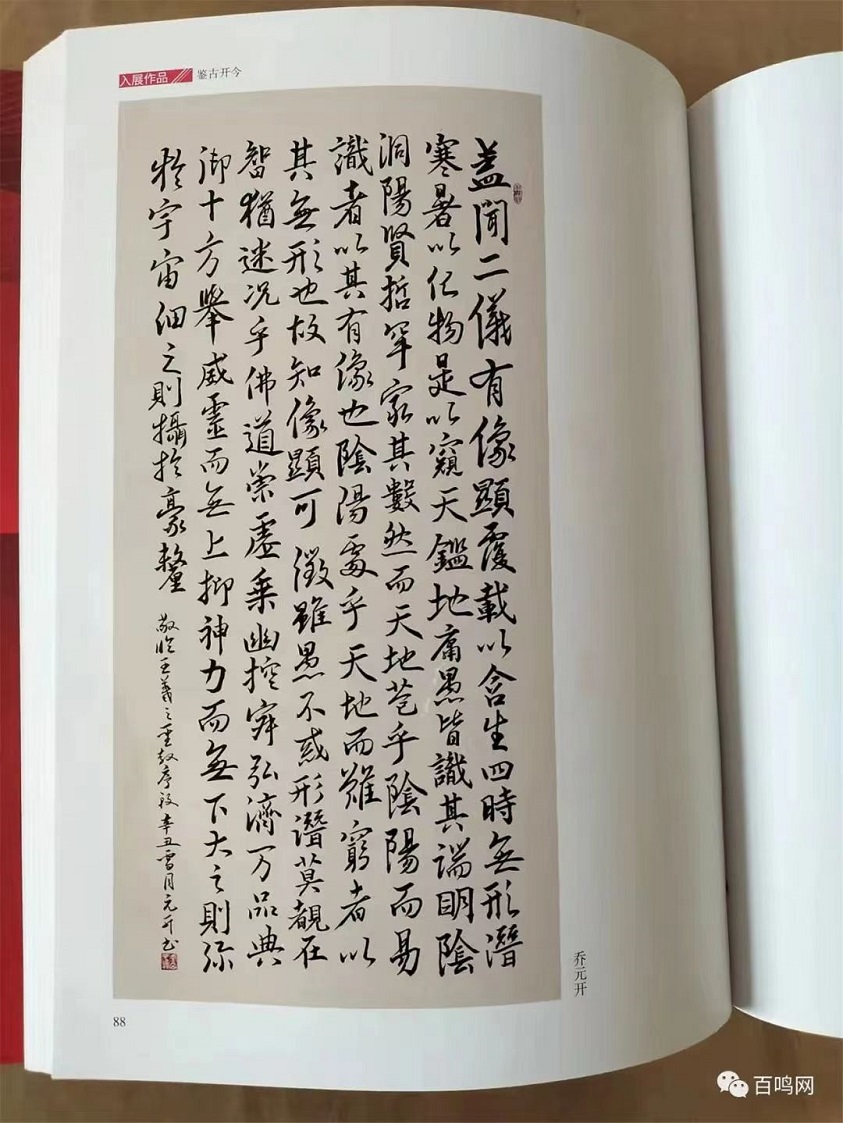 入展作品
鉴古开今
盖聞二儀有像顯覆載以含生四時無形潛
寒暑以化物是以窺天鑑地庸愚皆識其端明陰
洞陽賢哲罕家其數然而天地苞乎陰陽而易
識者以其有像也陰陽處乎天地而難窮者以
其無形也故知像顯可徵雖愚不惑形潛莫覩在
智猶迷况乎佛道崇虛乘幽控寂弘濟万品典
御十方舉威靈而無上抑神力而無下大之則弥
於宇宙細之則攝於豪釐
敬临王羲之圣教序段辛丑雪月元开书
乔元开
88
百鸣网